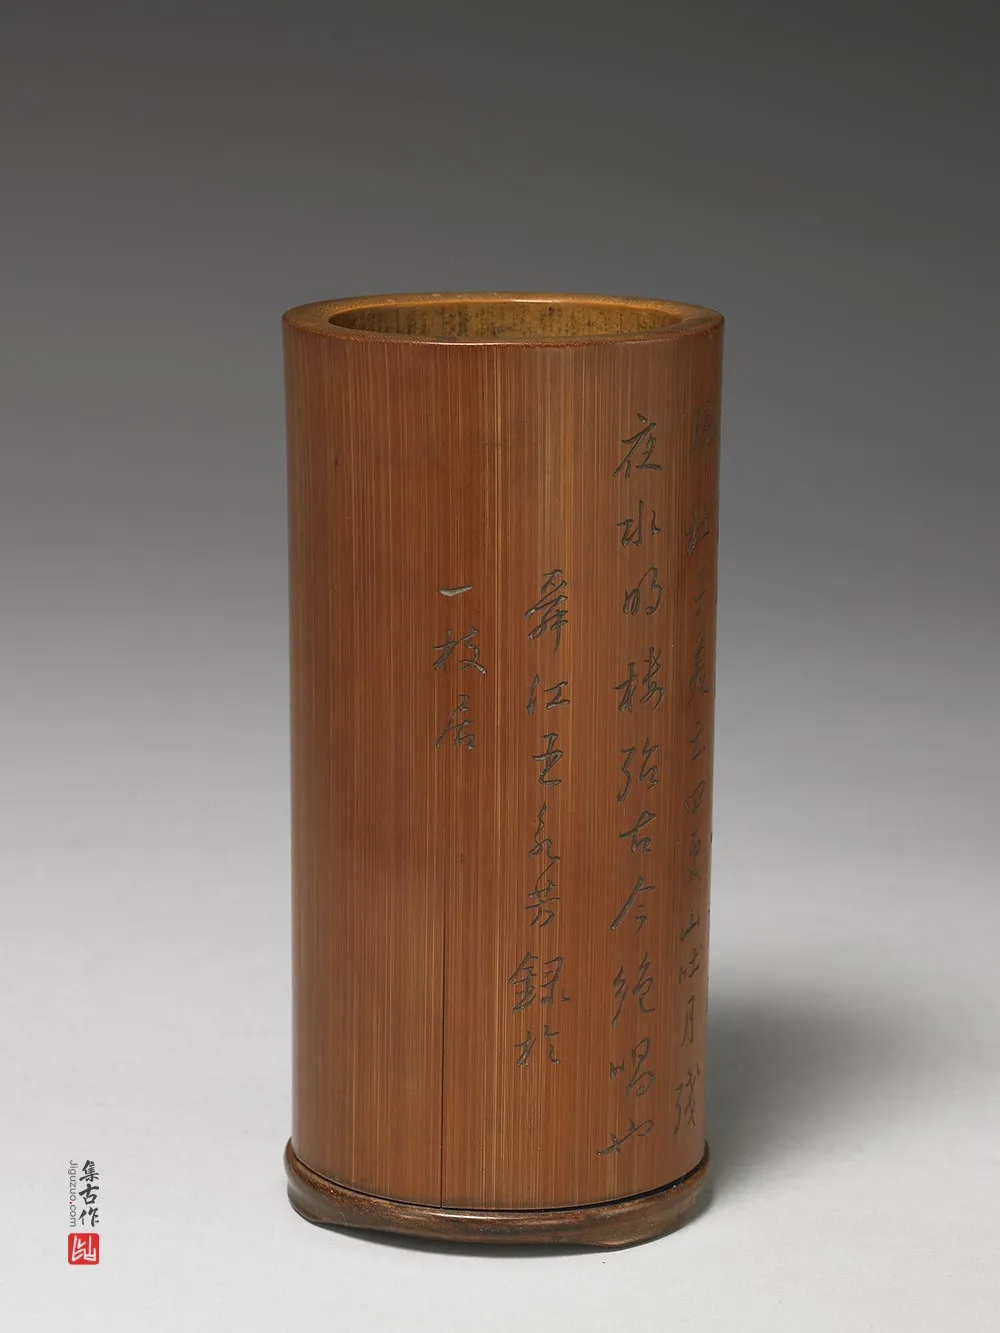 杜子美云四更山吐月殘
夜水明樓殆古今絕唱也
舜江永芳録於
一枝居
集古作
Jiguzuo.com